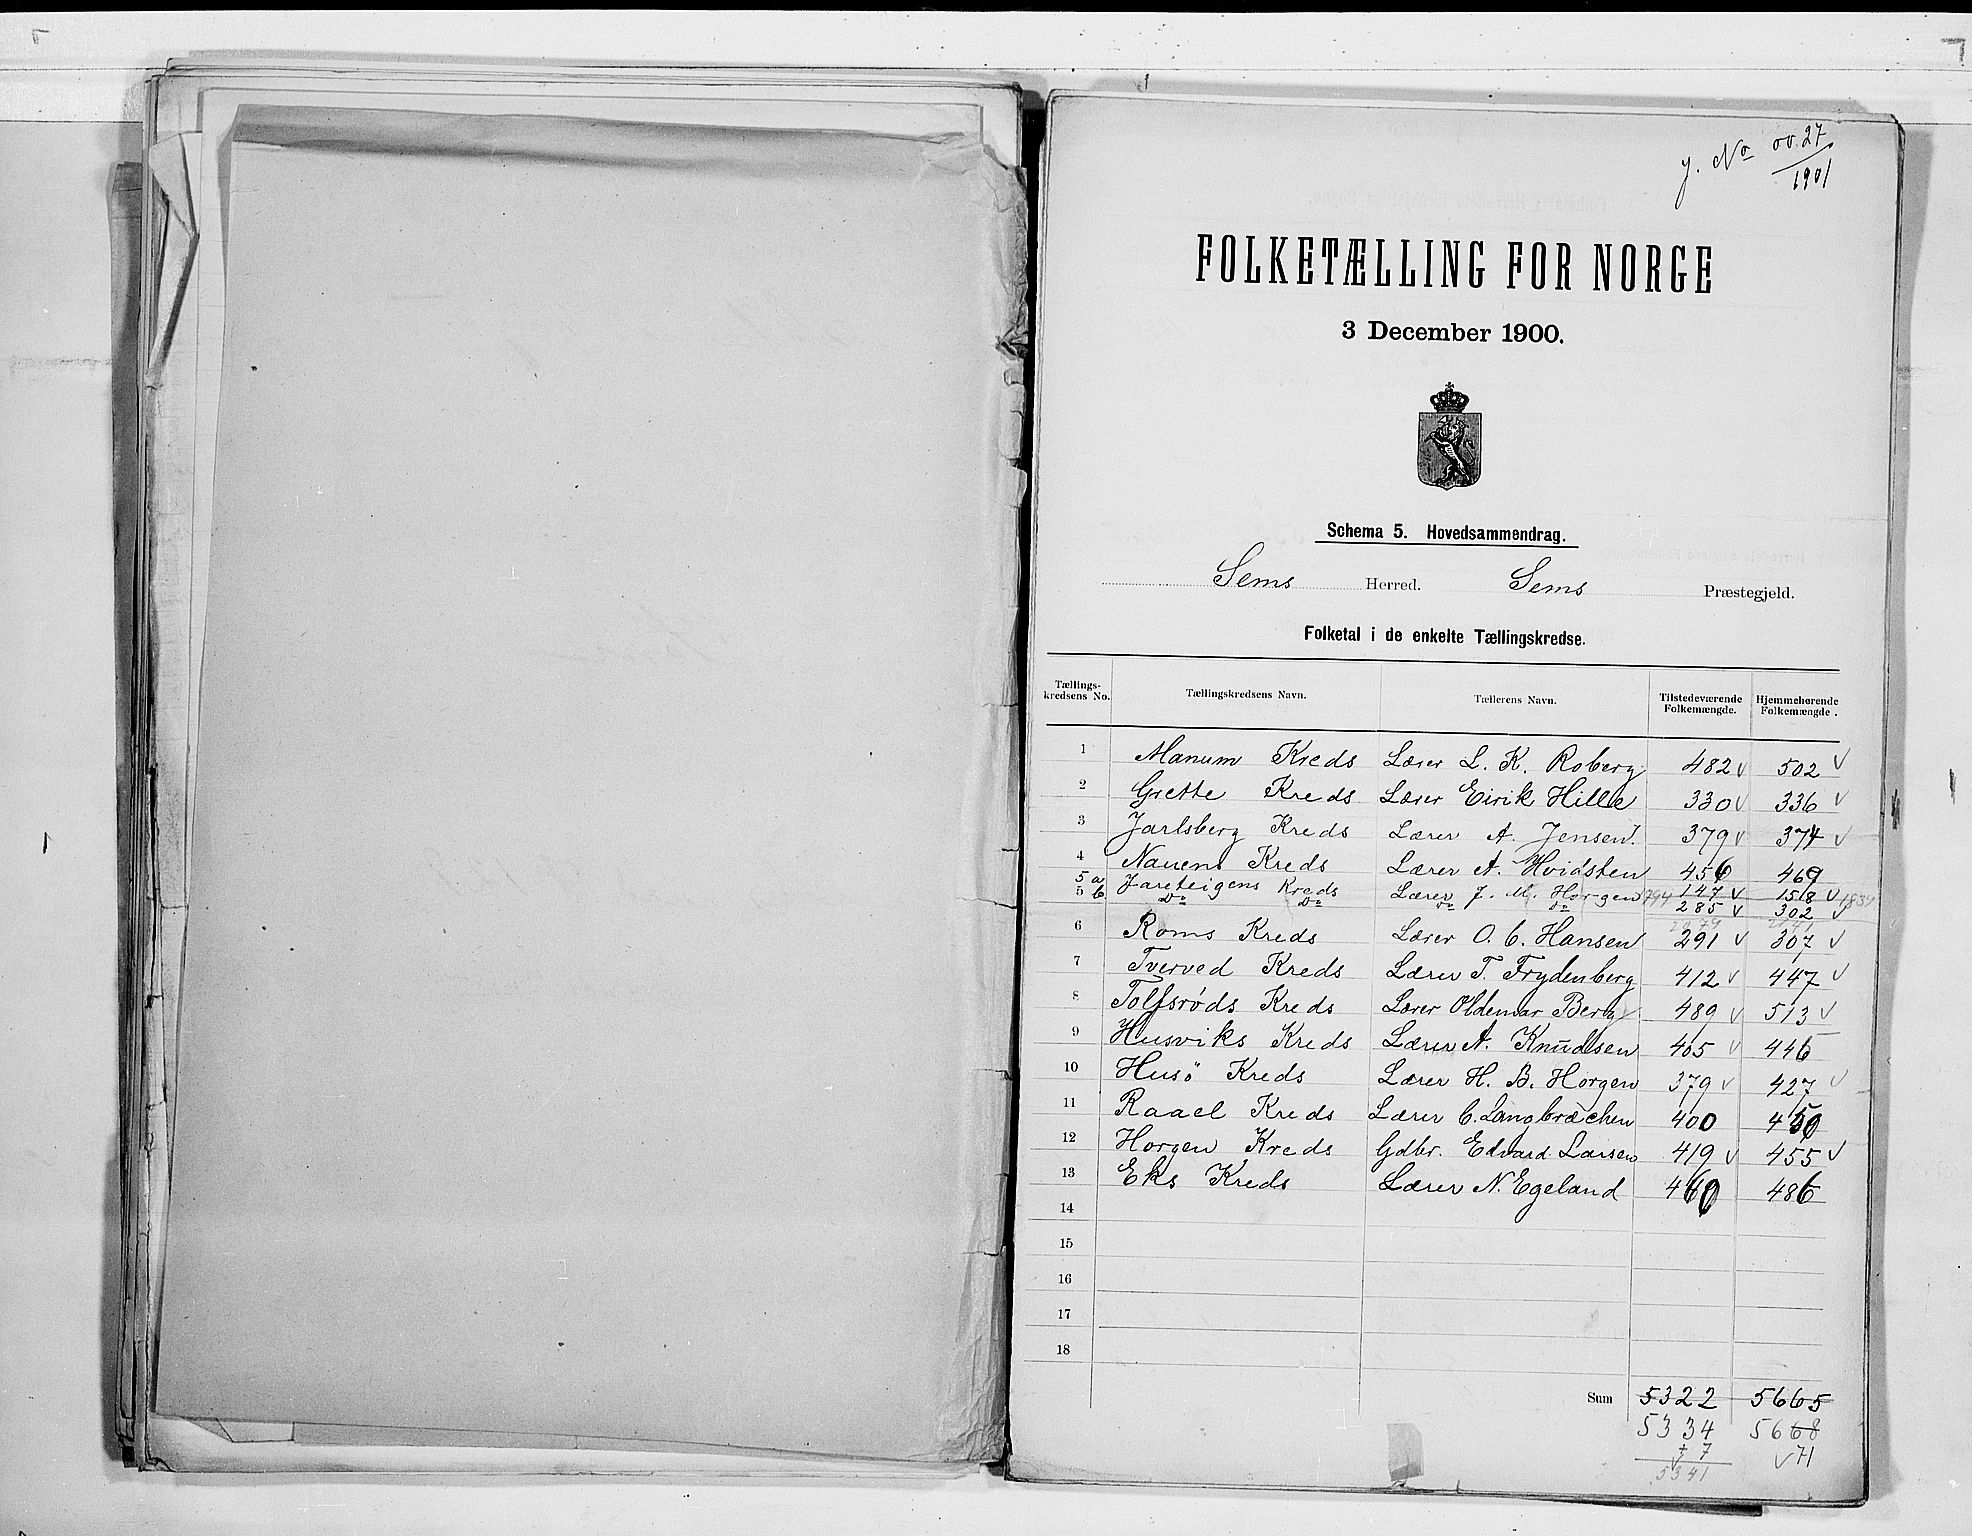 J. No 00.27
1901
FOLKETÆLLING FOR NORGE
3 December 1900.
Schema 5. Hovedsammendrag.
Sems Herred. Sems Præstegjeld.
Folketal i de enkelte Tællingskredse.
Tællings-kredsens No. Tællingskredsens Navn. Tællerens Navn. Tilstedeværende Folkemængde. Hjemmehørende Folkemængde.
1 Manum Kreds Lærer L. K. Roberg 482 v 502 v
2 Grette Kreds Lærer Eirik Hille 330 v 336 v
3 Jarlsberg Kreds Lærer A. Jensen. 379 v 374 v
4 Nauens Kreds Lærer A. Hvidsten 456 469
5 a Jareteigens Kreds Lærer J. M. Horgen 147 v 158 v
5 b Do Do Do Do 285 v 302 v
6 Roms Kreds Lærer O. C. Hansen 291 v 307 v
7 Tverved Kreds Lærer T. Frydenberg 412 v 447 v
8 Tolfsrøds Kreds Lærer Oldemar Berg 489 v 513 v
9 Husviks Kreds Lærer A. Knudsen 405 v 446
10 Husö Kreds Lærer H. B. Horgen 379 v 427 v
11 Raael Kreds Lærer C. Langbræchen 400 450
12 Horgen Kreds Gdbr. Edvard Larsen 419 v 455 v
13 Eks Kreds Lærer N. Egeland 460 486
14
15
16
17
18
Sum 5322 5665
5334 5668
+ 7 v 71
5341